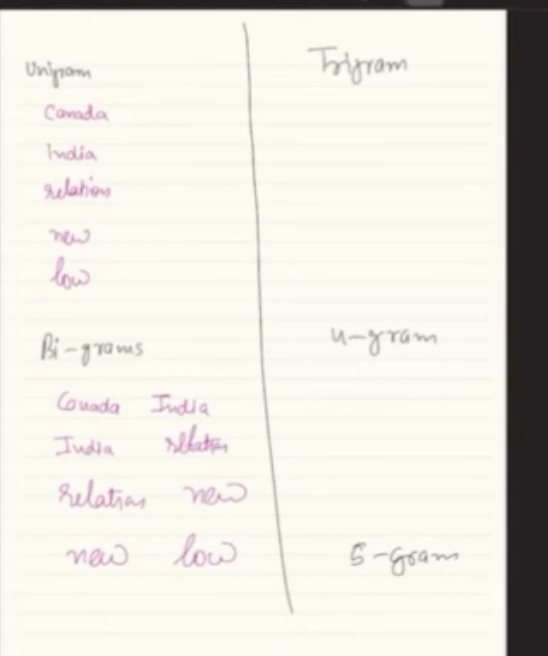 Unigram
Canada
India
relation
new
low
Bi-grams
Canada India
India relation
relation new
new low
Trigram
4-gram
5-gram